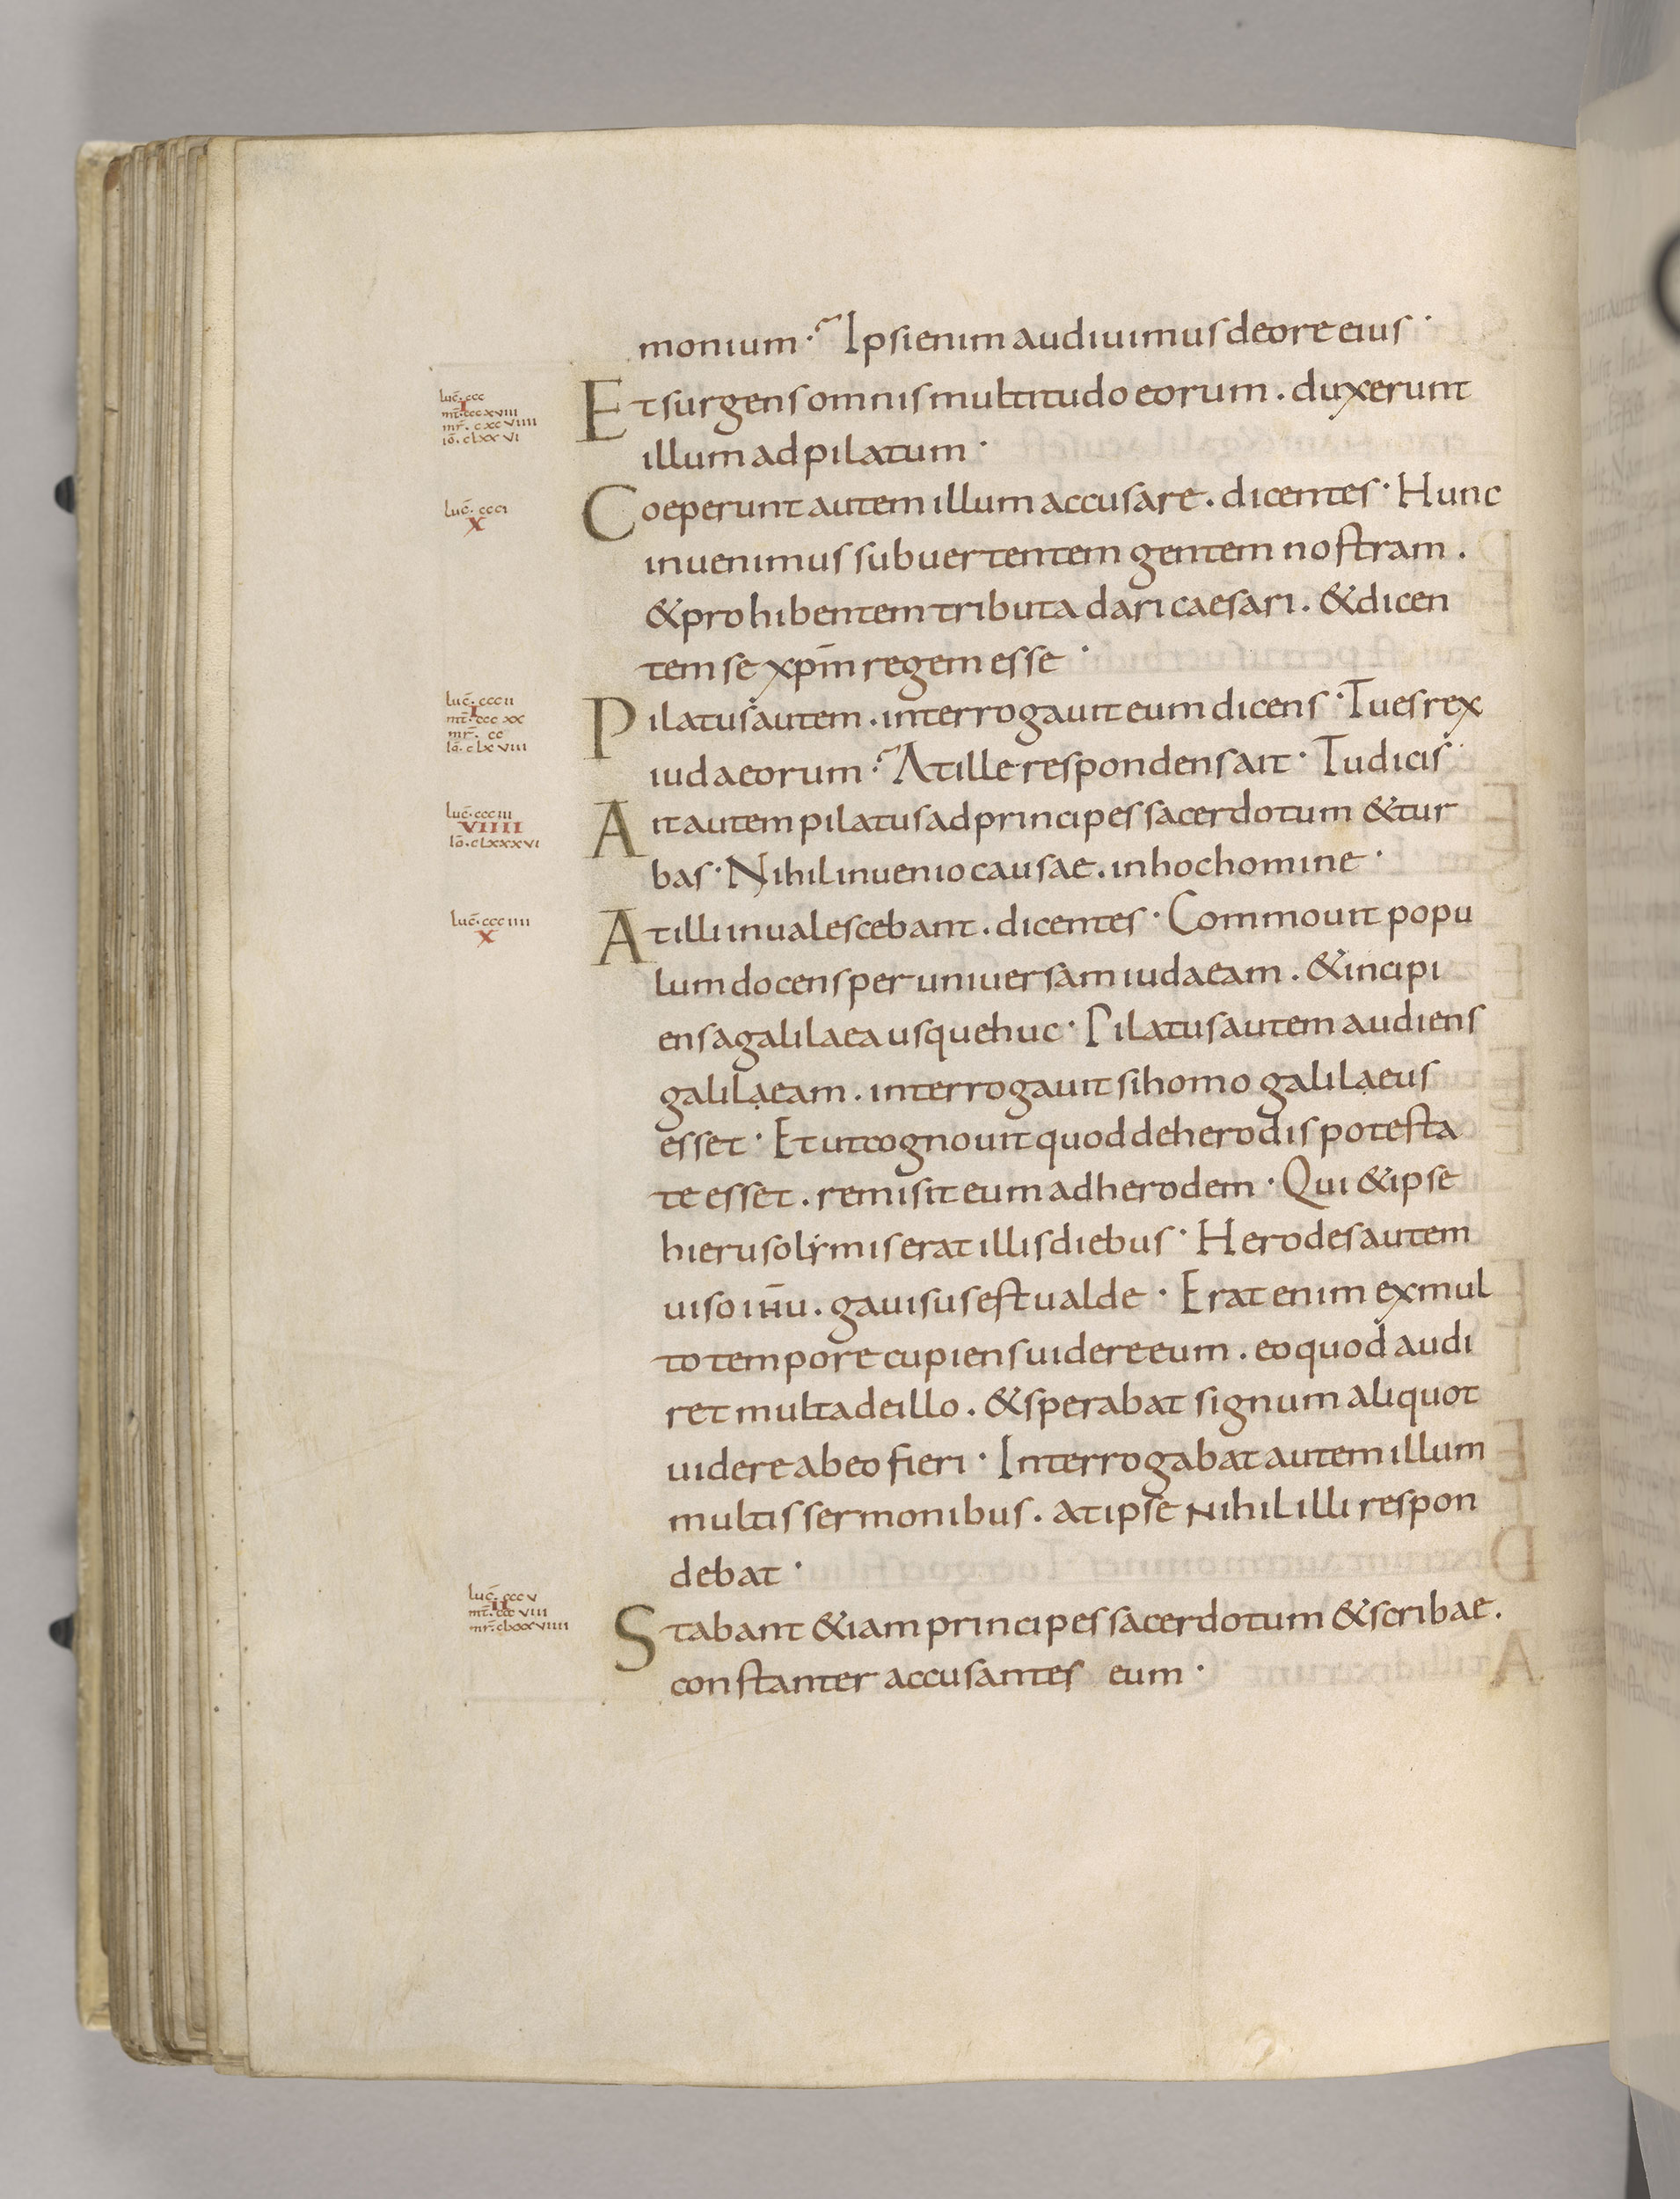 monium· Ipsi enim audiuimus de ore eius·
luc̄. ccc
I
mt̄. cccxviii
mr̄. cxcviiii
iō. clxxvi
Et surgens omnis multitudo eorum. duxerunt
illum ad pilatum·
luc̄. ccci
X
Coeperunt autem illum accusare. dicentes· Hunc
inuenimus subuertentem gentem nostram.
& prohibentem tributa dari caesari. & dicen
tem se xp̄m regem esse·
luc̄. cccii
I
mt̄. cccxx
mr̄. cc
iō. clxxviii
Pilatus autem. interrogauit eum dicens· Tu es rex
iudaeorum· At ille respondens ait· Tu dicis·
luc̄. ccciii
VIIII
iō. clxxxvi
Ait autem pilatus ad principes sacerdotum & tur
bas· Nihil inuenio causae. in hoc homine·
luc̄. ccciiii
X
At illi inualescebant. dicentes· Commouit popu
lum docens per uniuersam iudaeam. & incipi
ens a galilaea usque huc· Pilatus autem audiens
galilaeam. interrogauit si homo galilaeus
esset· Et ut cognouit quod de herodis potesta
te esset. remisit eum ad herodem· Qui & ipse
hierusolymis erat illis diebus· Herodes autem
uiso ih̄u. gauisus est ualde· Erat enim ex mul
to tempore cupiens uidere eum. eo quod audi
ret multa de illo. & sperabat signum aliquot
uidere ab eo fieri· Interrogabat autem illum
multis sermonibus. at ipse nihil illi respon
debat·
luc̄. cccv
II
mt̄. cccviii
mr̄. clxxxviiii
Stabant &iam principes sacerdotum & scribae.
constanter accusantes eum·